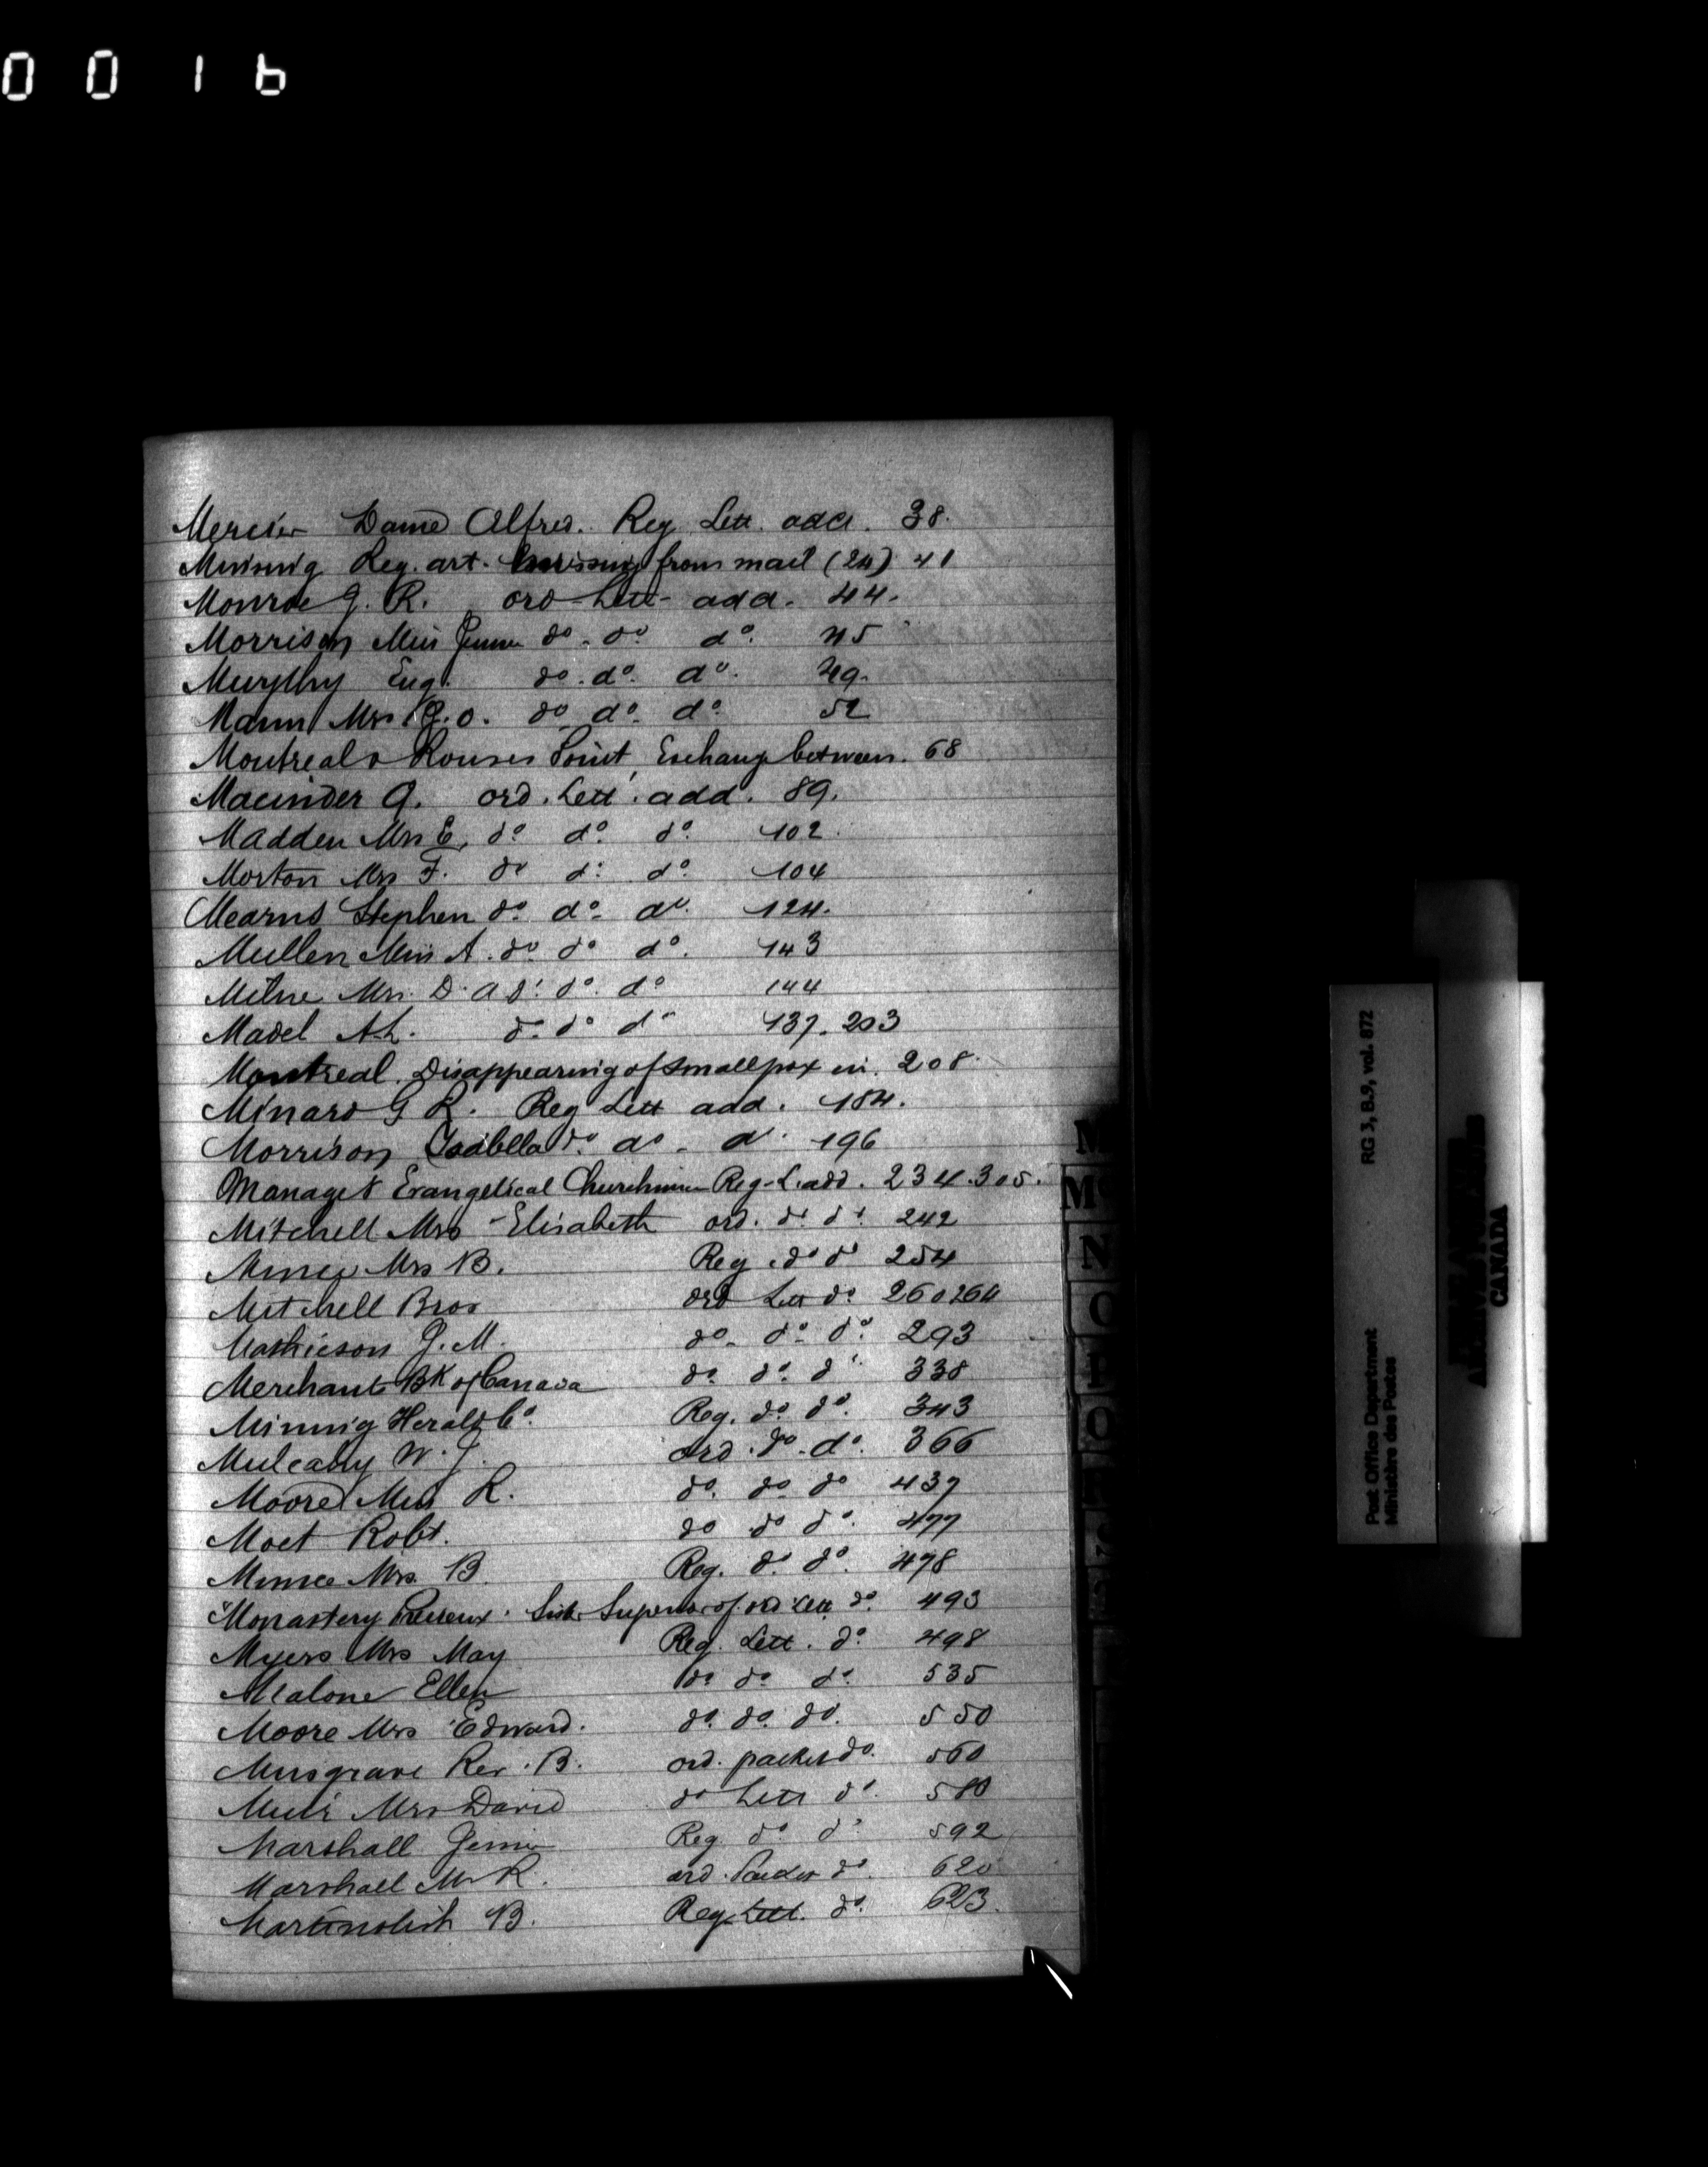 0 0 1 6
Mercier Dame Alfred. Reg Lett. add. 38.
Missing Reg. art. missing from mail (24) 41
Monroe G. R. ord Lett add. 44.
Morrison Miss do. do. do. 45
Murphy Eug. do. do. do. 49.
Mann Mrs G.O. do do. do. 52
Montreal & Rouses Point, Exchange between. 68
Macinder A. ord. Lett. add. 89.
Madden Mrs E, do. do. do. 102.
Morton Mrs F. do do. do. 104
Mearns Stephen do. do. do. 124.
Mullen Miss A. do do do. 143
Milne Mrs. D. A do. do. do 144
Madel A.L. do. do do 137. 203
Montreal. Disappearing of smallpox in. 208.
Minard G R. Reg Lett add. 184.
Morrison Isabella do. do. do. 196
Manager Evangelical Churchman Reg-L. add. 234. 305.
Mitchell Mrs Elisabeth ord. do. do. 242
Mrs B. Reg. do do 254
Mitchell Bros ord Lett do. 260 264
Mathieson J. M. do. do. do. 293
Merchants Bk of Canada do. do. do. 338
Mining Herald Co. Reg. do. do. 343
Mulcahy W. J. ord. do. do. 366
Moore Miss R. do. do. do 437
Moet Robt. do do do. 477
Mrs. B. Reg. do. do. 478
Monastery Precieux. Sister Superior of. ord Lett. do. 493
Myers Mrs May Reg. Lett. do. 498
Malone Ellen do. do. do. 535
Moore Mrs Edward. do. do. do. 550
Musgrave Rev. B. ord. packet do. 560
Muir Mrs David do Lett do. 580
Marshall Jennie Reg. do do 592
Marshall M R. ord. do. 620
B. Reg. Lett. do. 623.
M
Mc
N
O
RG 3, B.9, vol. 872
Post Office Department
Ministère des Postes
CANADA